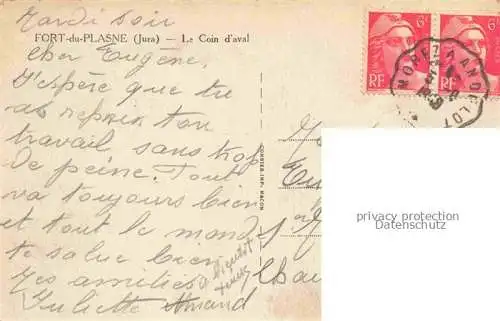 Mardi soir
FORT-du-PLASNE (Jura) — Le Coin d'aval
Cher Eugène,
J'espère que tu
as repris ton
travail sans trop
de peine. Tout
va toujours bien
et tout le monde
te salue bien
Mes amitiés
à bientôt
Juliette Amand
6F
RF
6F
RF
MOREZ ANDELOT
COMBIER IMP. MACON
privacy protection
Datenschutz